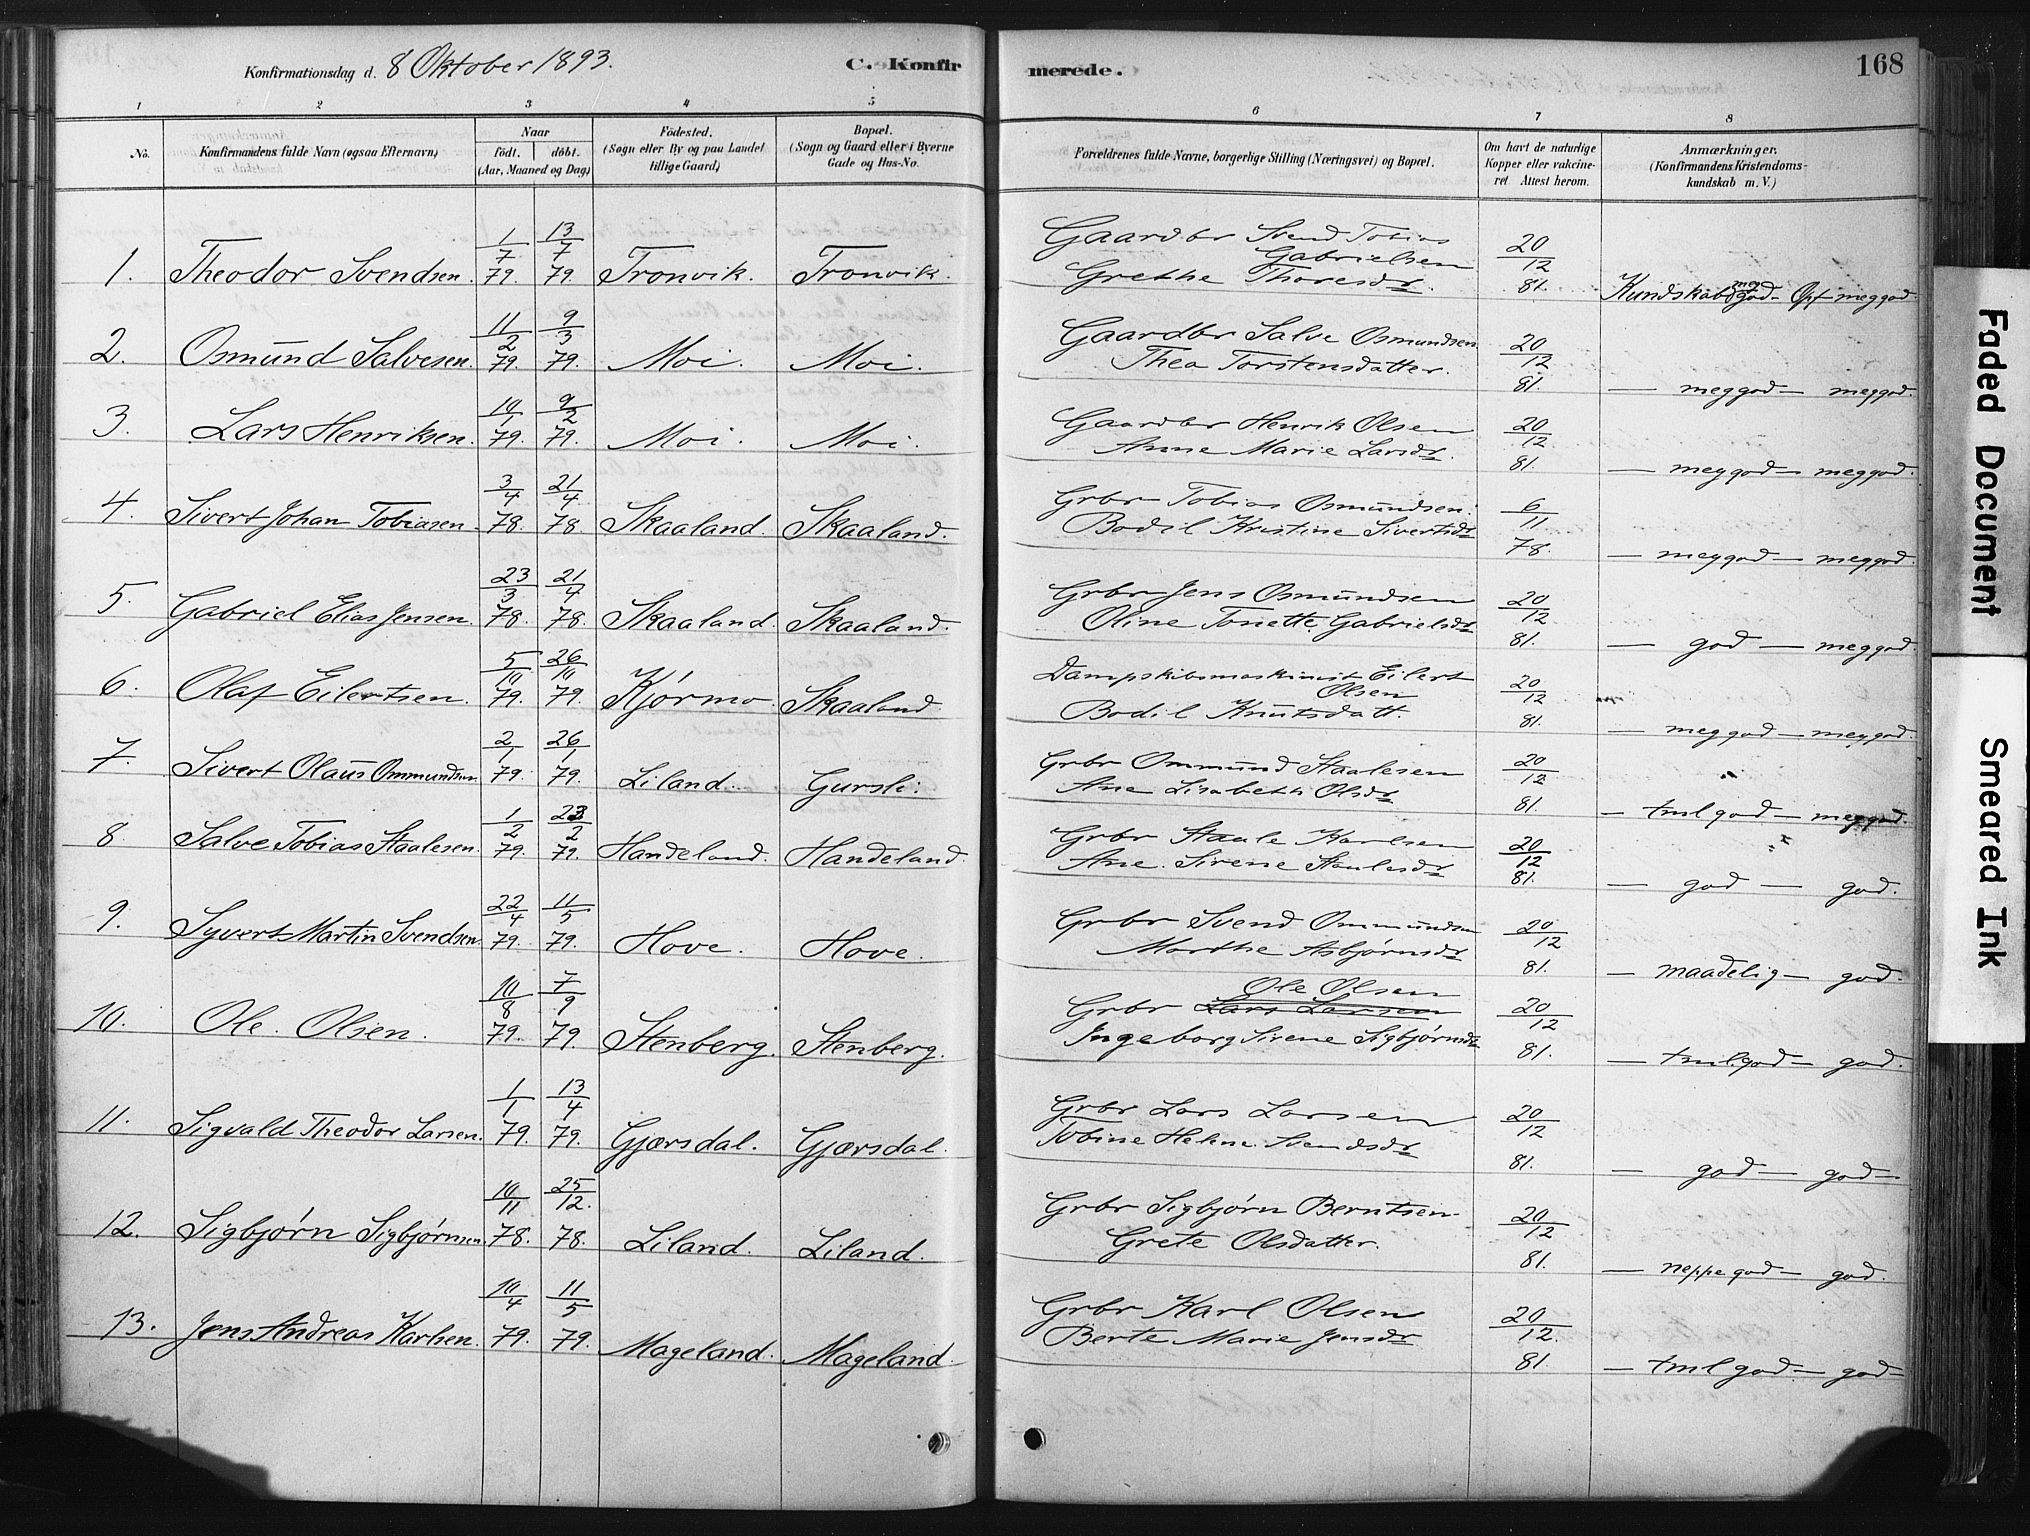 Konfirmationsdag d. 8 Oktober 1893.
C. Konfirmerede.
168
1 2 3 4 5 6 7 8
No.
Konfirmandens fulde Navn (ogsaa Efternavn)
Naar
födt. döbt.
(Aar, Maaned og Dag)
Födested.
(Sogn eller By og paa Landet
tillige Gaard)
Bopæl.
(Sogn og Gaard eller i Byerne
Gade og Hus-No.
Forældrenes fulde Navne, borgerlige Stilling (Næringsvei) og Bopæl.
Om havt de naturlige
Kopper eller vakcine-
ret Attest herom.
Anmærkninger.
(Konfirmandens Kristendoms-
kundskab m. V.)
1. Theodor Svendsen. 1/7 79. 13/7 79. Tronvik. Tronvik. Gaardbr Svend Tobias
Gabrielsen
Grethe Thoresdr 20/12 81. Kundskab meg god - Opf meg god
2. Osmund Salvesen. 11/2 79. 9/3 79. Moi. Moi. Gaardbr Salve Osmundsen
Thea Torstensdatter. 20/12 81. — meg god — meg god.
3. Lars Henriksen. 10/1 79. 9/2 79. Moi. Moi. Gaardbr Henrik Olsen
Anne Marie Larsdr. 20/12 81. — meg god — meg god.
4. Sivert Johan Tobiasen. 3/4 78. 21/4 78. Skaaland. Skaaland. Grbr Tobias Osmundsen.
Bodil Kristine Sivertsdr 6/11 78. — meg god — meg god.
5. Gabriel Elias Jensen. 23/3 78. 21/4 78. Skaaland. Skaaland. Grbr Jens Osmundsen
Oline Tonette Gabrielsdr 20/12 81. — god — meg god
6. Olaf Eilertsen. 5/10 79. 26/10 79. Kjørmo. Skaaland. Dampskibsmaskinist Eilert
Olsen
Bodil Knutsdatt. 20/12 81. — meg god — meg god.
7. Sivert Olaus Ommundsen. 2/1 79. 26/1 79. Liland. Gursli. Grbr Ommund Staalesen
Ane Lisabeth Olsdr 20/12 81. — tml god — meg god.
8. Salve Tobias Staalesen. 1/2 79. 23/2 79. Handeland. Handeland. Grbr Staale Karlsen
Ane Sirene Staalesdr 20/12 81. — god — god.
9. Syvert Martin Svendsen. 22/4 79. 11/5 79. Hove. Hove. Grbr Svend Ommundsen
Marthe Asbjørnsdr 20/12 81. — maadelig — god.
10. Ole Olsen. 10/8 79. 7/9 79. Stenberg. Stenberg. Ole Olsen
Grbr Lars Larsen
Ingeborg Sirene Sigbjørnsdr 20/12 81. — tml. god — god.
11. Sigvald Theodor Larsen. 1/1 79. 13/4 79. Gjærsdal. Gjærsdal. Grbr Lars Larsen
Tobine Helene Svendsdr 20/12 81. — god — god —
12. Sigbjørn Sigbjørnsen. 10/11 78. 25/12 78. Liland. Liland. Grbr Sigbjørn Berntsen
Grete Olsdatter. 20/12 81. — neppe god — god.
13. Jens Andreas Karlsen. 10/4 79. 11/5 79. Mageland. Mageland. Grbr Karl Olsen
Berte Marie Jensdr 20/12 81. — tml god — god —
Faded Document
Smeared Ink